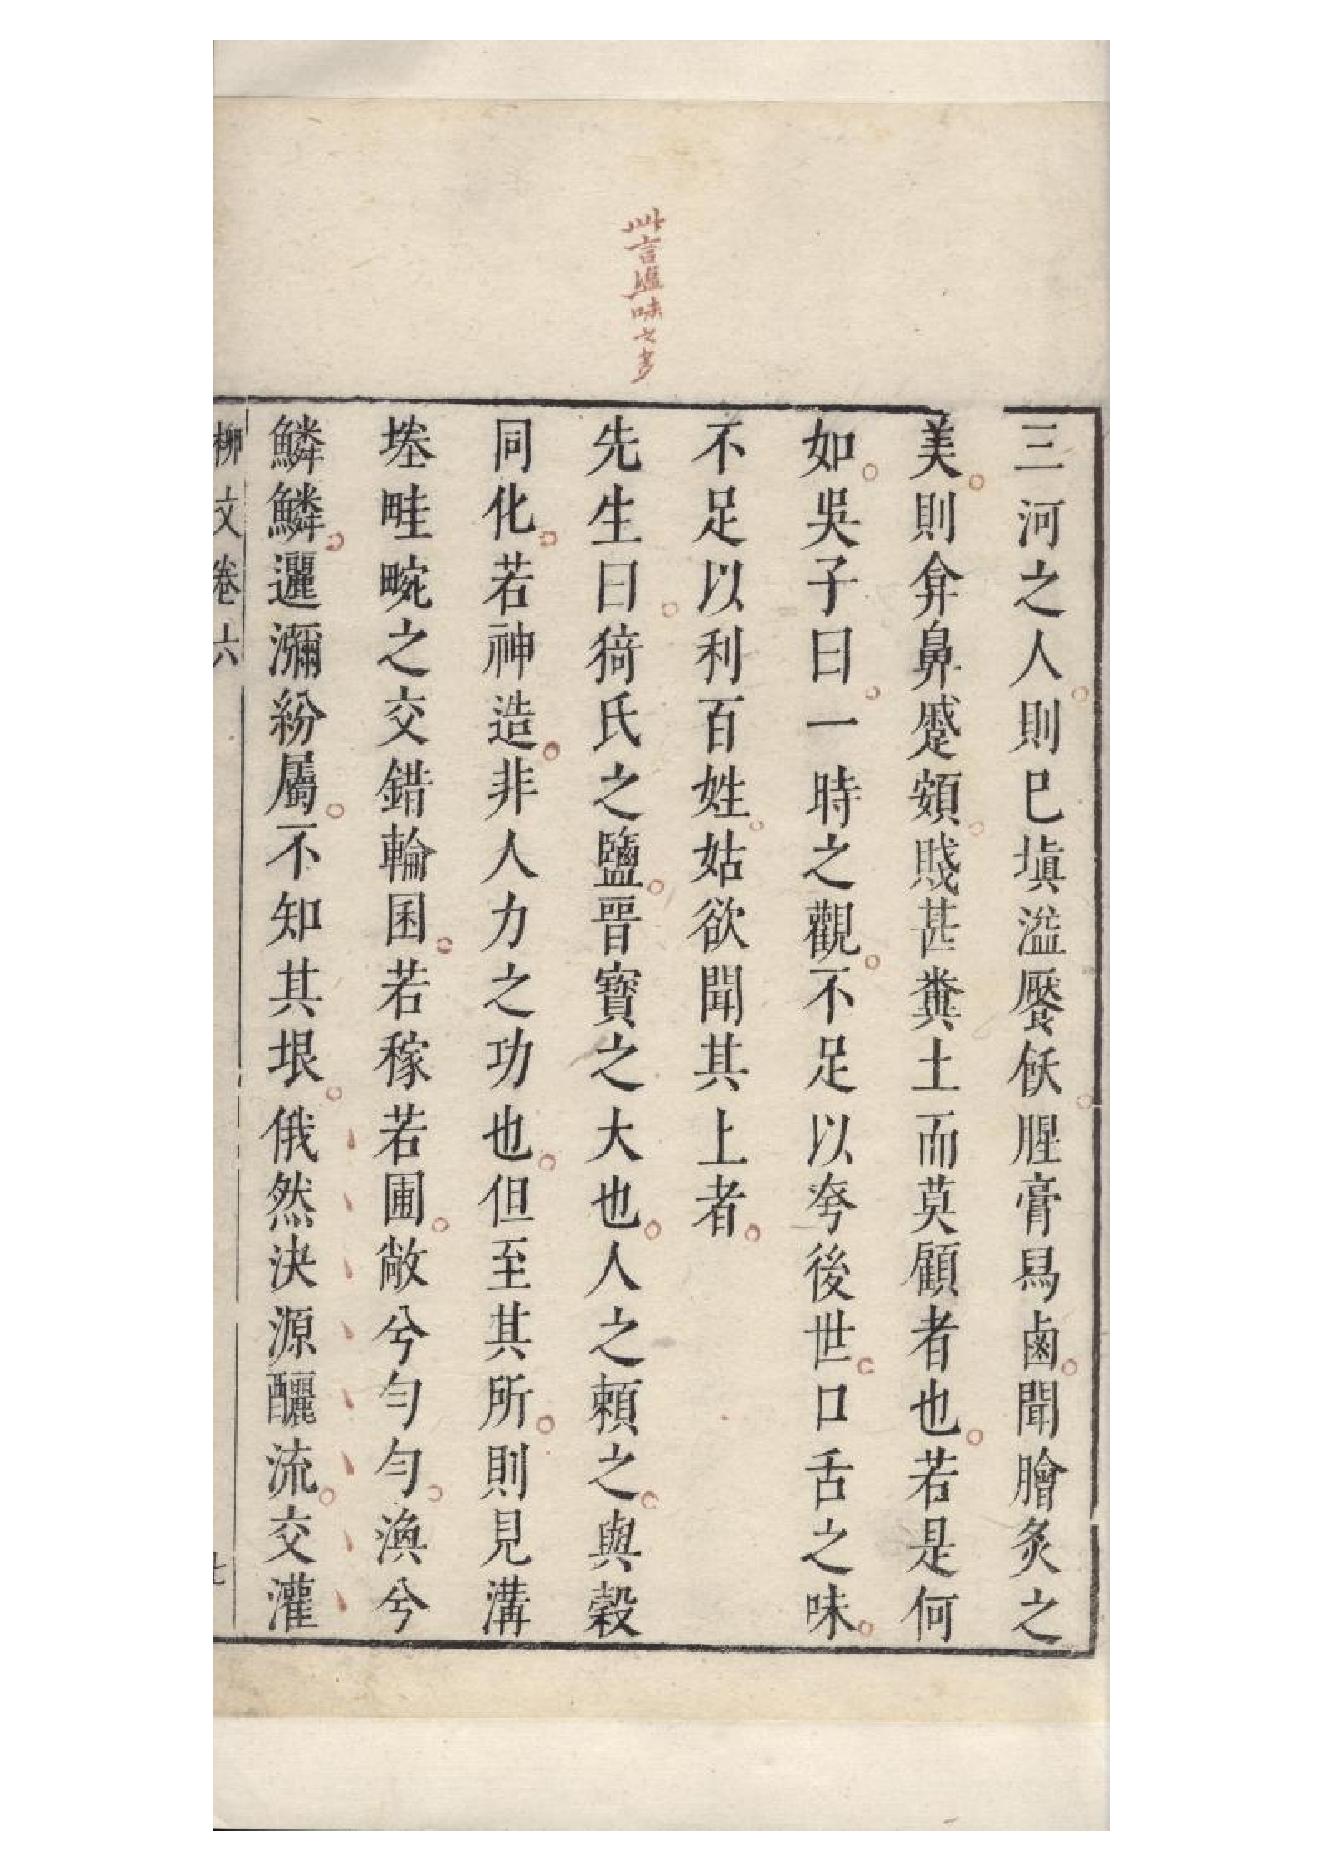 此言鹽味之多
三河之人則已塡溢饜飫腥膏舄鹵聞膾炙之
美則弇鼻蹙頞賤甚糞土而莫顧者也若是何
如吳子曰一時之觀不足以夸後世口舌之味
不足以利百姓姑欲聞其上者
先生曰猗氏之鹽晉寳之大也人之賴之與穀
同化若神造非人力之功也但至其所則見溝
塍畦畹之交錯輪囷若稼若圃敞兮勻勻渙兮
鱗鱗邐瀰紛屬不知其垠俄然決源釃流交灌
柳文卷六
七